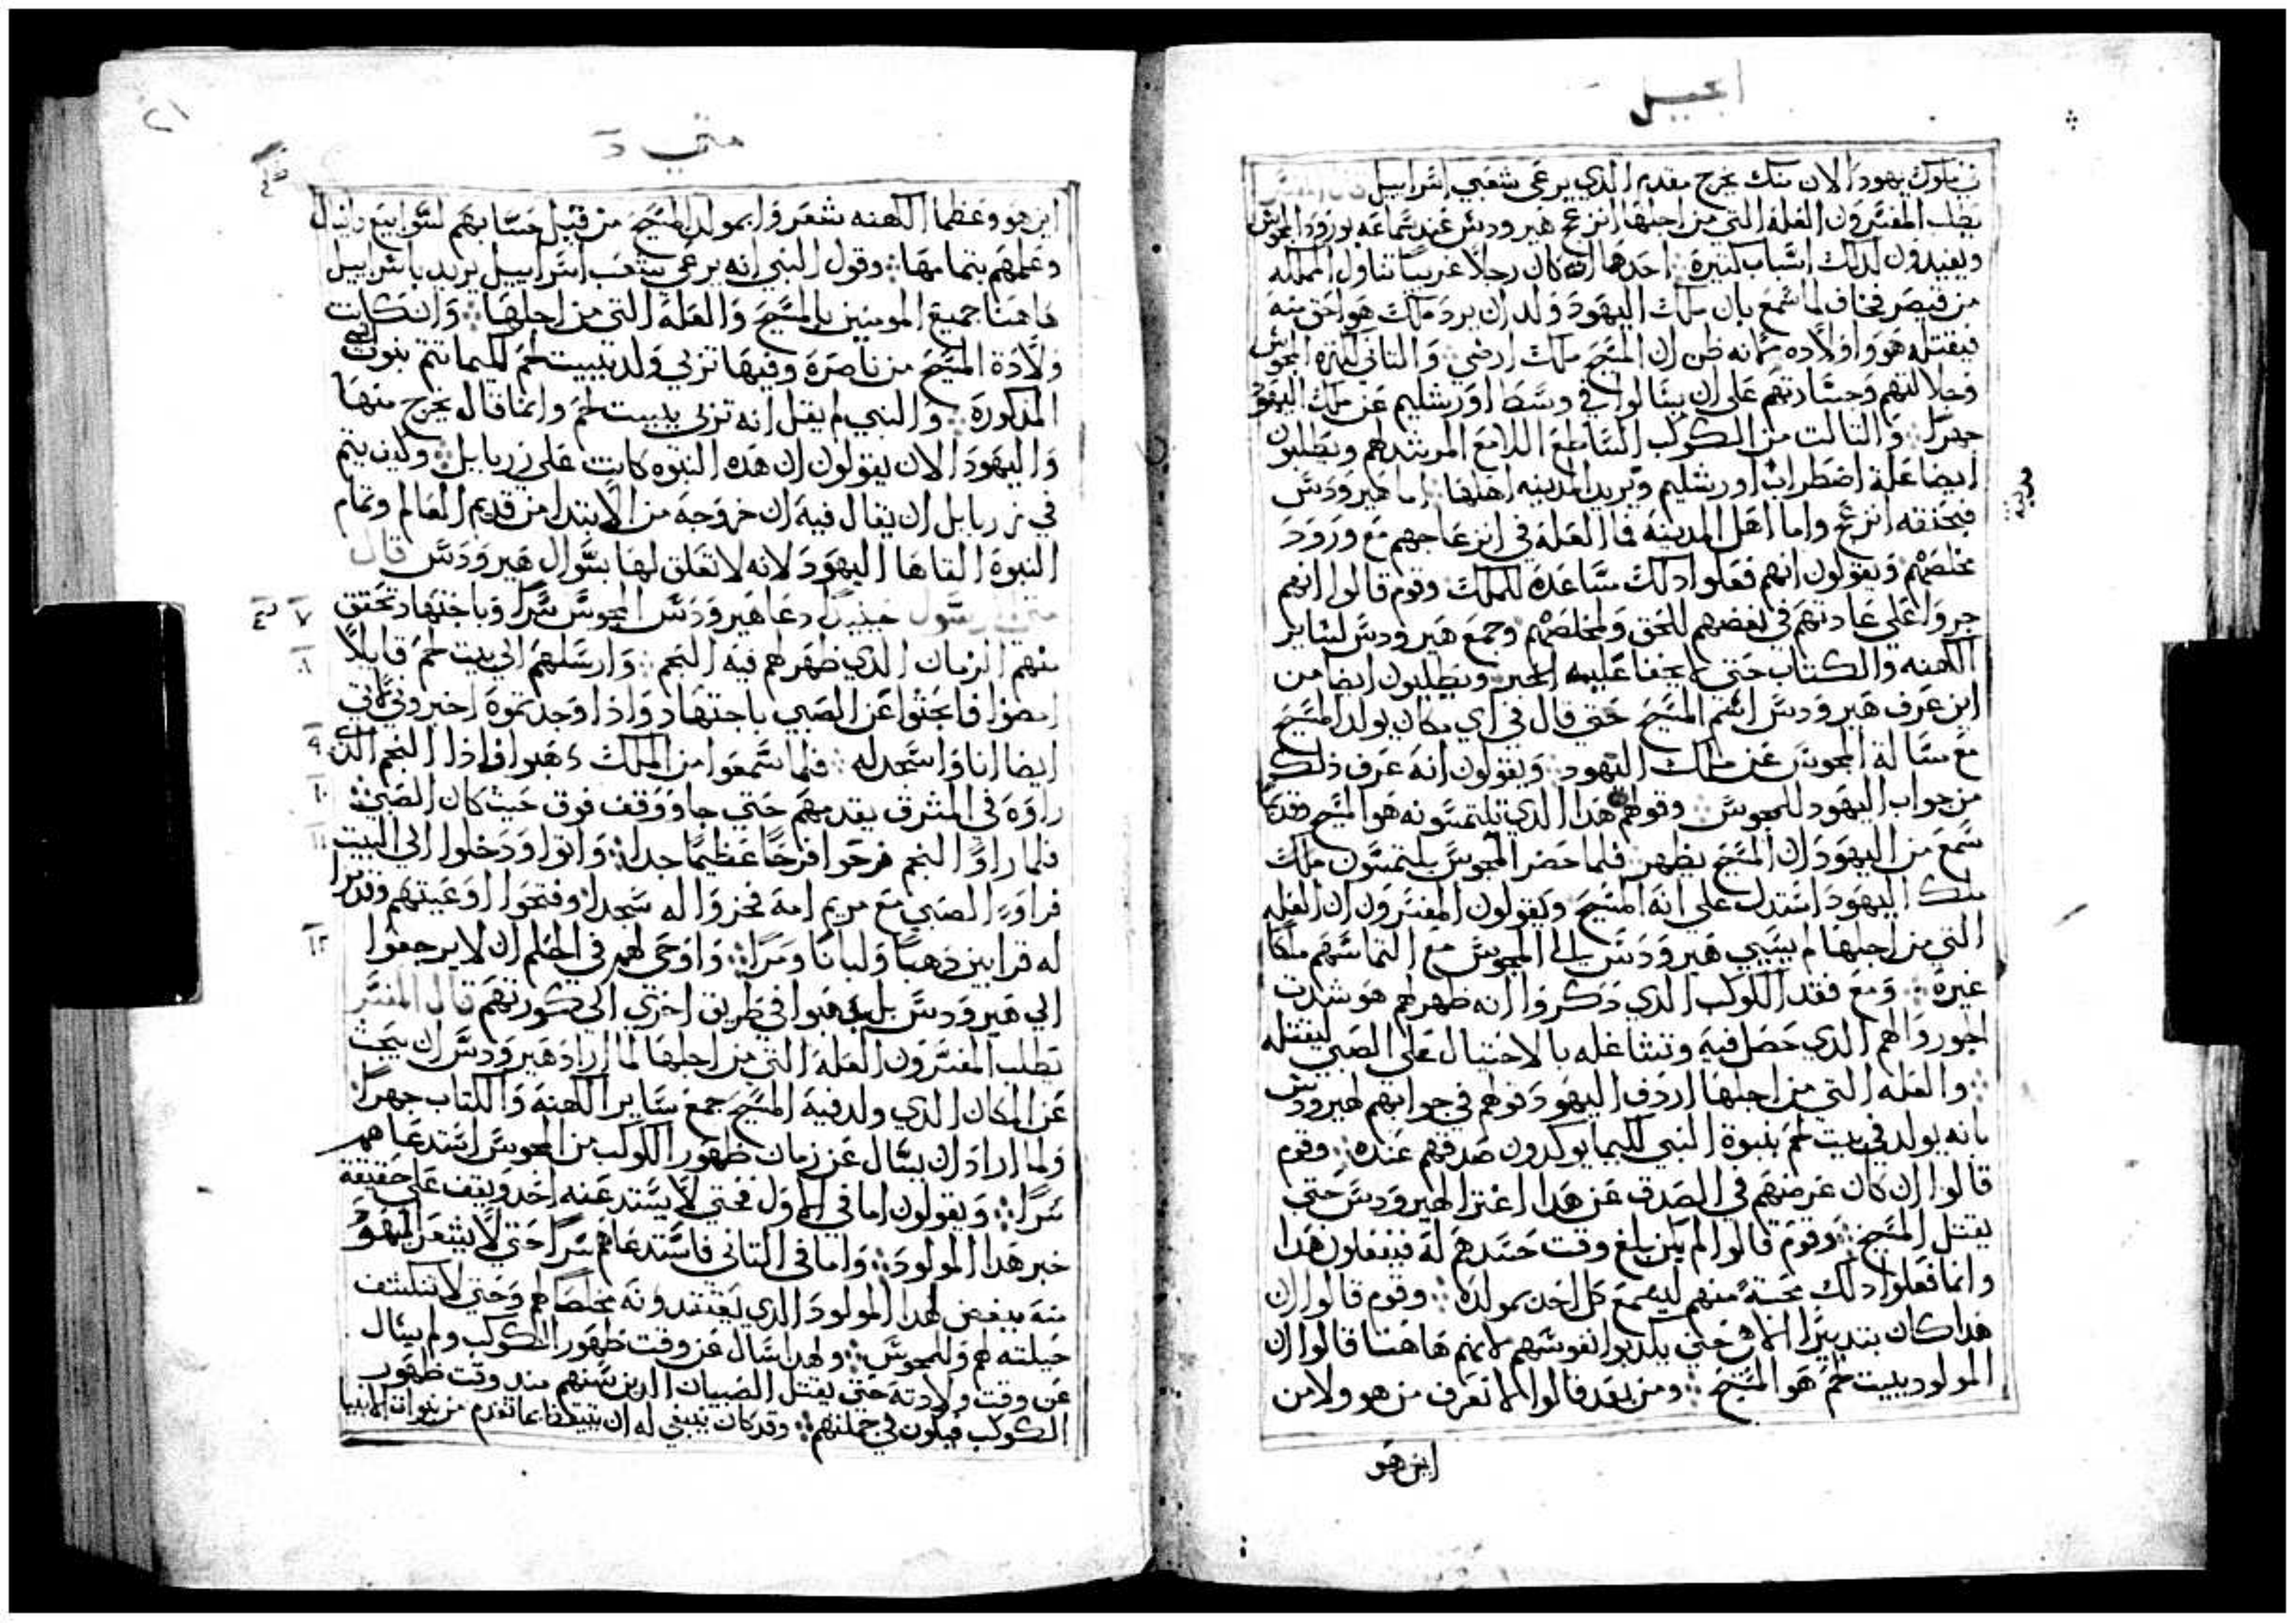 انجيل
في ملوك يهودا لان منك يخرج مقدم الذي يرعى شعبي اسراييل قال المفسر
يطلب المفسرون العله التي من اجلها انزعج هيرودس عند سماعه بورود المجوس
ويفيدون لدلك اسباب كتيرة احدها انه كان رجلا غريبا تناول المملكه
من قيصر فخاف لما سمع بان ملك اليهود ولد ان يرد ملك هو احق منه
فيقتله هو واولاده لانه ظن ان المسيح ملك ارضي والتاني لكترة المجوس
وجلالتهم وجسارتهم على ان يسالوا في وسط اورشليم عن ملك اليهود
جهرا والتالت من الكوكب الساطع اللامع المرشد لهم ويطلبون
ايضا علة اضطراب اورشليم ويريد المدينه اهلها اما هيرودس
مدينة
فبحنقه انزعج واما اهل المدينه فما العله في انزعاجهم مع ورود
مخلصهم ويقولون انهم فعلوا دلك مساعده للملك وقوم قالوا انهم
جروا على عادتهم في بغضهم للحق ولمخلصهم وجمع هيرودس لساير
الكهنه والكتاب حتى لا يخفا عليه الخبر ويطلبون ايضا من
اين عرف هيرودس اسم المسيح حتى قال في اي مكان يولد المسيح
مع مسالة المجوس عن ملك اليهود ويقولون انه عرف ذلك
من جواب اليهود للمجوس وقولهم هذا الذي تلتمسونه هو المسيح وقد كان
سمع من اليهود ان المسيح يظهر فلما حضر المجوس يلتمسون ملك
ملك اليهود استدل على انه المسيح ويقولون المفسرون ان العله
التي من اجلها لم يسي هيرودس الى المجوس مع التماسهم ملكا
غيره ومع فقد الكوكب الذي ذكروا انه ظهر لهم هو شدت
الذي حصل فيه وتشاغله بالاحتيال على الصبي ليقتله
والعله التي من اجلها اردف اليهود قولهم في جوابهم لهيرودس
بانه يولد في بيت لحم بنبوة النبي لكيما يوكدون صدقهم عنده وقوم
قالوا ان كان غرضهم في الصدق عن هدا اغترا لهيرودس حتى
يقتل المسيح وقوم قالوا لم يكن بلغ وقت حسدهم له فيفعلون هدا
وانما فعلوا دلك محبة منهم ليسمع كل احد بمولده وقوم قالوا ان
هدا كان بتدبير الاهي حتى يكدبوا نفوسهم لانهم هاهنا قالوا ان
المولود ببيت لحم هو المسيح ومن بعد قالوا لا نعرف من هو ولا من
اين هو
٢١
متى د
اين هو وعظما الكهنه شعروا بمولد المسيح من قبل حسابهم لسوابيع دانيال
وعلمهم بتمامها وقول النبي انه يرعى شعب اسراييل يريد باسراييل
هاهنا جميع المومنين بالمسيح والعلة التي من اجلها وان كانت
ولادة المسيح من ناصرة وفيها تربي ولد ببيت لحم لكيما تتم نبوت النبي
المدكورة والنبي لم يقل انه تربى ببيت لحم وانما قال يخرج منها
واليهود الان يقولون ان هده النبوه كانت على زربابل وكيف يتم
في زربابل ان يقال فيه ان خروجه من الابتدا من قديم العالم وتمام
النبوة القاها اليهود لانه لا تعلق لها بسوال هيرودس قال
متى الرسول حينيد دعا هيرودس المجوس سرا وباجتهاد تحقق
منهم الزمان الدي ظهر لهم فيه النجم وارسلهم الى بيت لحم قايلا
امضوا فابحثوا عن الصبي باجتهاد واذا وجدتموه اخبروني لاتي
ايضا انا واسجد له فلما سمعوا من الملك دهبوا واذا النجم الدي
راوه في المشرق يقدمهم حتى جا ووقف فوق حيث كان الصبي
فلما راوا النجم فرحوا فرحا عظيما جدا واتوا ودخلوا الى البيت
فراوا الصبي مع مريم امه فخروا له سجدا وفتحوا اوعيتهم وقدموا
له قرابين ذهبا ولبانا ومرا واوحى لهم في الحلم ان لا يرجعوا
الى هيرودس بل دهبوا في طريق اخرى الى كورتهم قال المفسر
يطلب المفسرون العله التي من اجلها لما اراد هيرودس ان يبحث
عن المكان الدي ولد فيه المسيح جمع ساير الكهنه والكتاب جهرا
ولما اراد ان يسال عن زمان ظهور الكوكب من المجوس استدعاهم
سرا ويقولون اما في الاول فحتى لا يستد عنه احد ويقف على حقيقة
خبر هدا المولود واما في التاني فاستدعاهم سرا حتى لا يشعر اليهود
منه ببغض لهدا المولود الدي يعتقدونه مخلصا لهم وحتى لا تنكشف
حيلته لهم وللمجوس ولهدا سال عن وقت ظهور الكوكب ولم يسال
عن وقت ولادته حتى يقتل الصبيان الدين سنهم مند وقت ظهور
الكوكب فيكون في جملتهم وقد كان ينبغي له ان يتيقظ بما تقدم من نبوات الانبيا
٧
٨
٩
١٠
١١
١٢